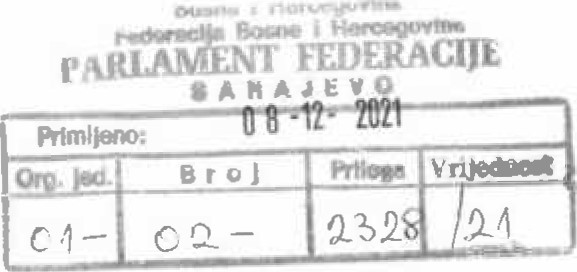 Bosna i Hercegovina
Federacija Bosne i Hercegovine
PARLAMENT FEDERACIJE
SARAJEVO
Primljeno: 08-12-2021
Org. jed. Broj Priloga Vrijednost
01- 02- 2328 /21